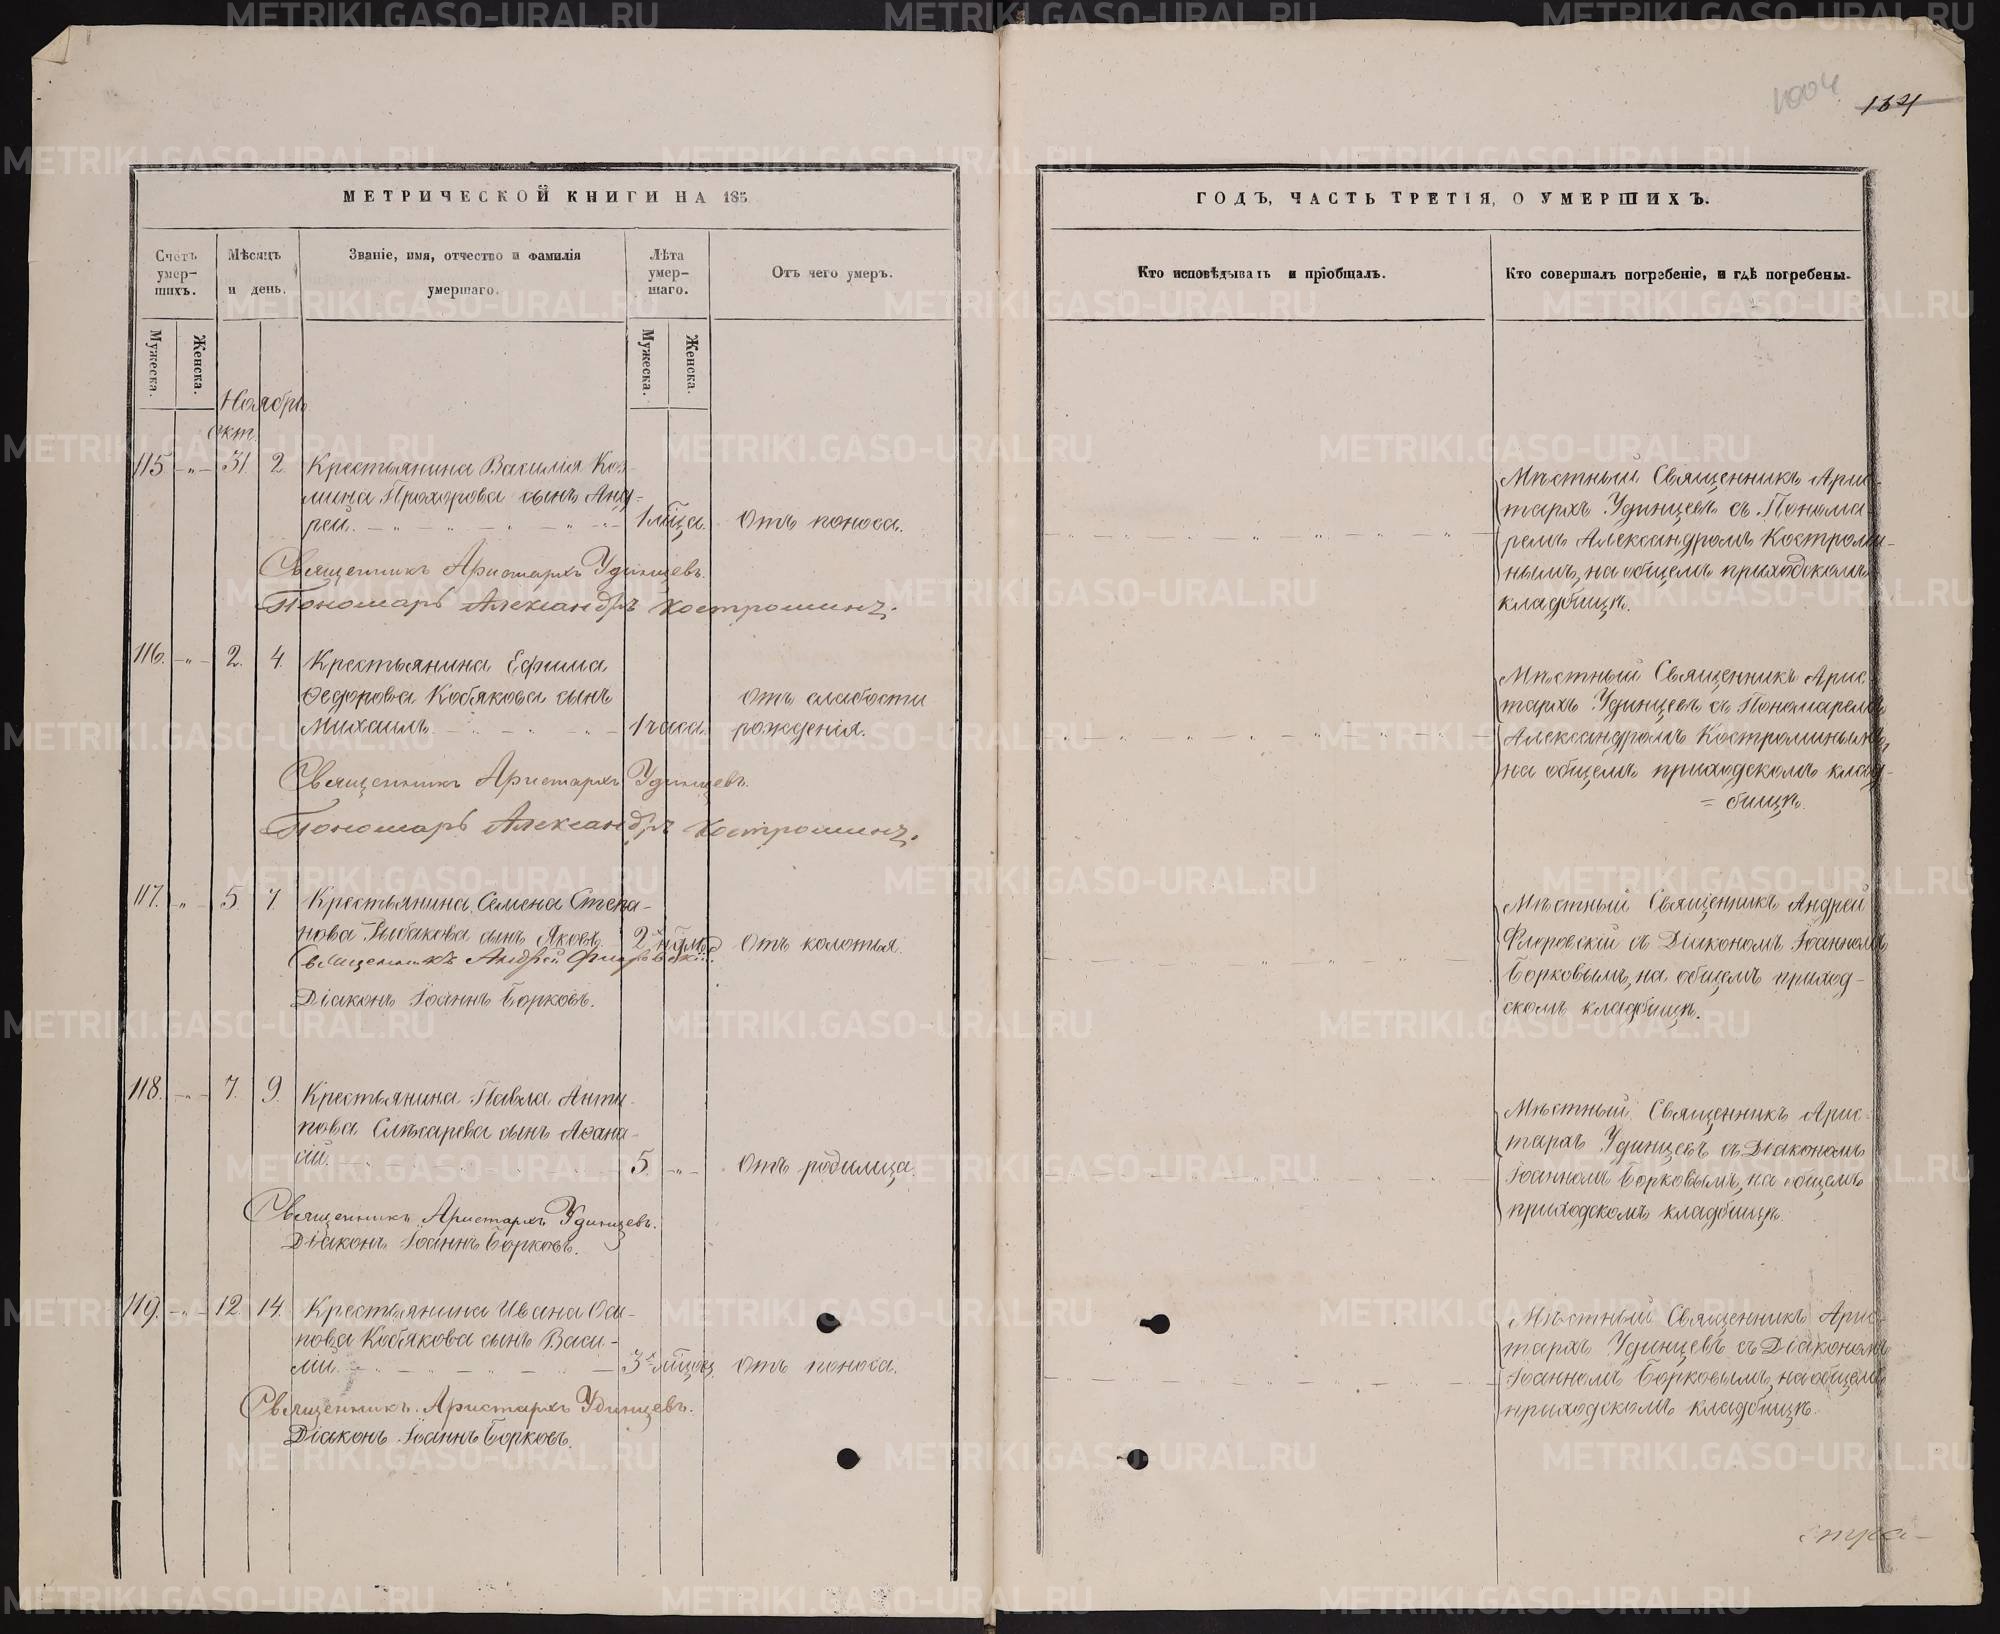 1004
134
МЕТРИЧЕСКОЙ КНИГИ НА 185
ГОДЪ, ЧАСТЬ ТРЕТІЯ, О УМЕРШИХЪ.
Счетъ умер-
шихъ.
Мѣсяцъ
и день.
Званіе, имя, отчество и фамилія
умершаго.
Лѣта
умер-
шаго.
Отъ чего умеръ.
Кто исповѣдывалъ и пріобщалъ.
Кто совершалъ погребеніе, и гдѣ погребены.
Мужеска.
Женска.
Мужеска.
Женска.
Ноябрь
Окт.
115 -"- 31. 2. Крестьянина Василія Коз-
мина Прохорова сынъ Анд-
рей. 1 мца. Отъ поноса.
Священникъ Аристархъ Удинцевъ.
Пономарь Александръ Костроминъ.
Мѣстный Священникъ Арис-
тархъ Удинцевъ съ Понома
ремъ Александромъ Костроми-
нымъ, на общемъ приходскомъ
кладбищѣ.
116. -"- 2. 4. Крестьянина Ефима
Ѳедорова Кобякова сынъ
Михаилъ. 1 часа. Отъ слабости
рожденія.
Священникъ Аристархъ Удинцевъ.
Пономарь Александръ Костроминъ.
Мѣстный Священникъ Арис
тархъ Удинцевъ съ Пономаремъ
Александромъ Костроминымъ,
на общемъ приходскомъ клад-
= бищѣ.
117. " 5. 7. Крестьянина Семена Степа-
нова Рыбакова сынъ Яковъ. 2 Отъ колотья.
Священникъ Андрей Флоровскій.
Діаконъ Іоаннъ Борковъ.
Мѣстный Священникъ Андрей
Флоровскій съ Діакономъ Іоанномъ
Борковымъ, на общемъ приход-
скомъ кладбищѣ.
118. -"- 7. 9. Крестьянина Павла Анти-
пова Слѣсарева сынъ Аѳана-
сій. 5. -"- Отъ родимца.
Священникъ Аристархъ Удинцевъ.
Діаконъ Іоаннъ Борковъ.
Мѣстный Священникъ Арис-
тархъ Удинцевъ съ Діакономъ
Іоанномъ Борковымъ, на общемъ
приходскомъ кладбищѣ.
119. -"- 12. 14. Крестьянина Ивана Оси-
пова Кобякова сынъ Васи-
лій. 3х мцовъ Отъ поноса.
Священникъ Аристархъ Удинцевъ.
Діаконъ Іоаннъ Борковъ.
Мѣстный Священникъ Арис-
тархъ Удинцевъ съ Діакономъ
Іоанномъ Борковымъ, на общемъ
приходскомъ кладбищѣ.
METRIKI.GASO-URAL.RU